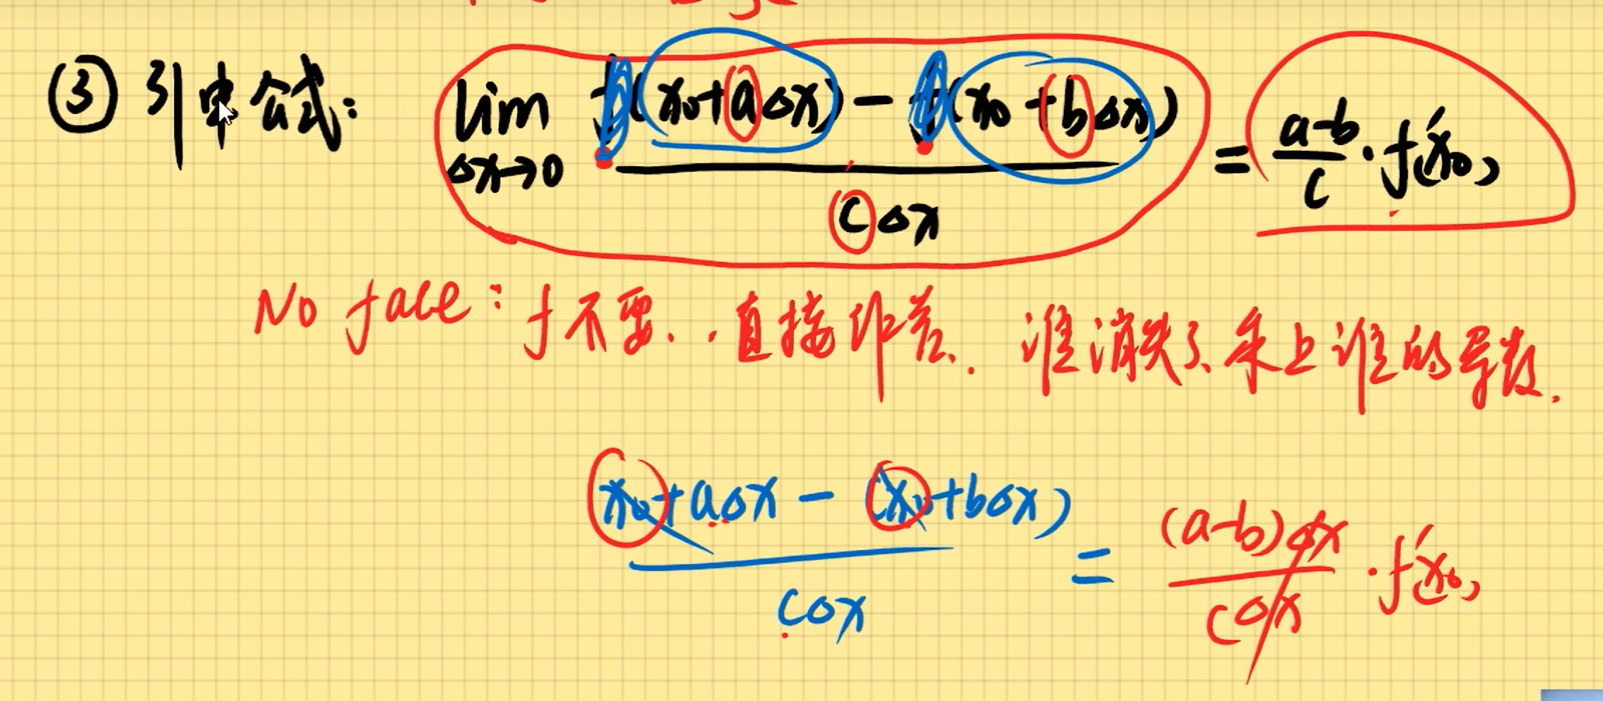 ③ 引申公式: lim Δx→0 f(x₀+aΔx) - f(x₀+bΔx) / cΔx = a-b / c · f'(x₀)
No face: f不要, 直接作差. 谁消失了, 乘上谁的导数.
x₀+aΔx - (x₀+bΔx) / cΔx = (a-b)Δx / cΔx · f'(x₀)